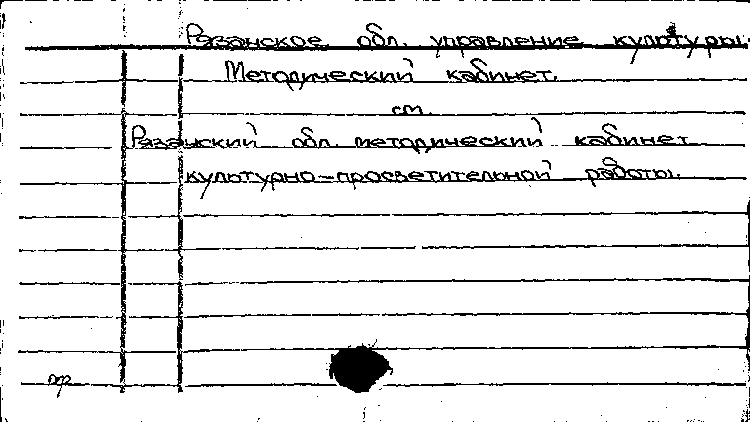 Рязанское обл. управление культуры.
Методический кабинет.
см.
Рязанский обл. методический кабинет
культурно-просветительной работы.